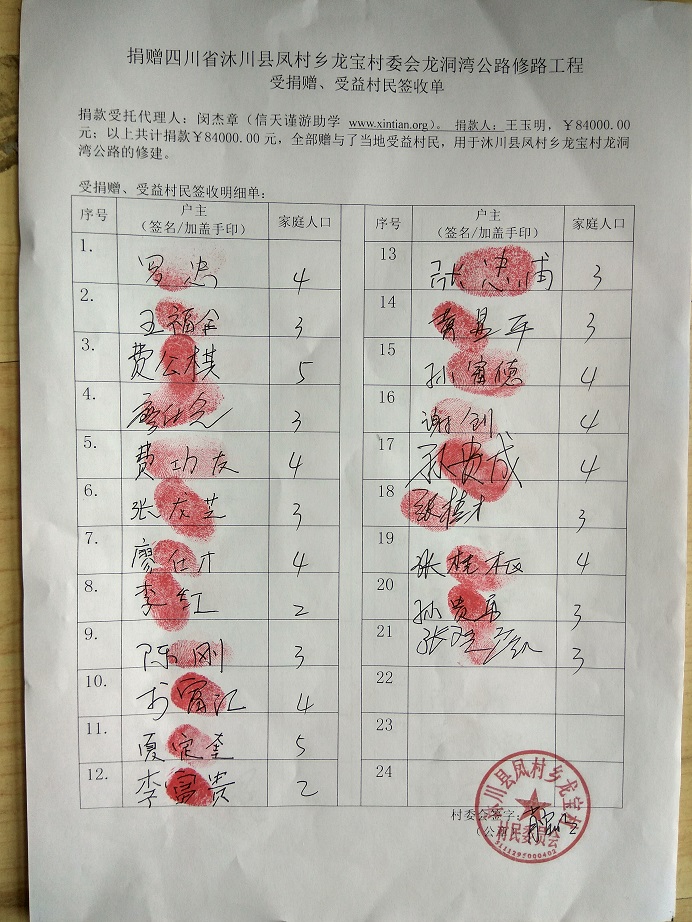 捐赠四川省沐川县凤村乡龙宝村委会龙洞湾公路修路工程
受捐赠、受益村民签收单
捐款受托代理人：闵杰章（信天谨游助学 www.xintian.org）。 捐款人：王玉明，￥84000.00
元；以上共计捐款￥84000.00 元，全部赠与了当地受益村民，用于沐川县凤村乡龙宝村龙洞
湾公路的修建。
受捐赠、受益村民签收明细单：
序号 户主（签名/加盖手印） 家庭人口 序号 户主（签名/加盖手印） 家庭人口
1. 罗忠 4 13 张忠甫 3
2. 王福全 3 14 黄昌平 3
3. 费公棋 5 15 孙富德 4
4. 3 16 谢剑 4
5. 费功友 4 17 孙贵成 4
6. 张友芝 3 18 张桂才 3
7. 廖仕才 4 19 张桂枢 4
8. 李红 2 20 孙贵勇 3
9. 陈刚 3 21 3
10. 富江 4 22
11. 夏定奎 5 23
12. 李富贵 2 24
村委会签字：
（公
沐川县凤村乡龙宝村
村民委员会
5111295000402